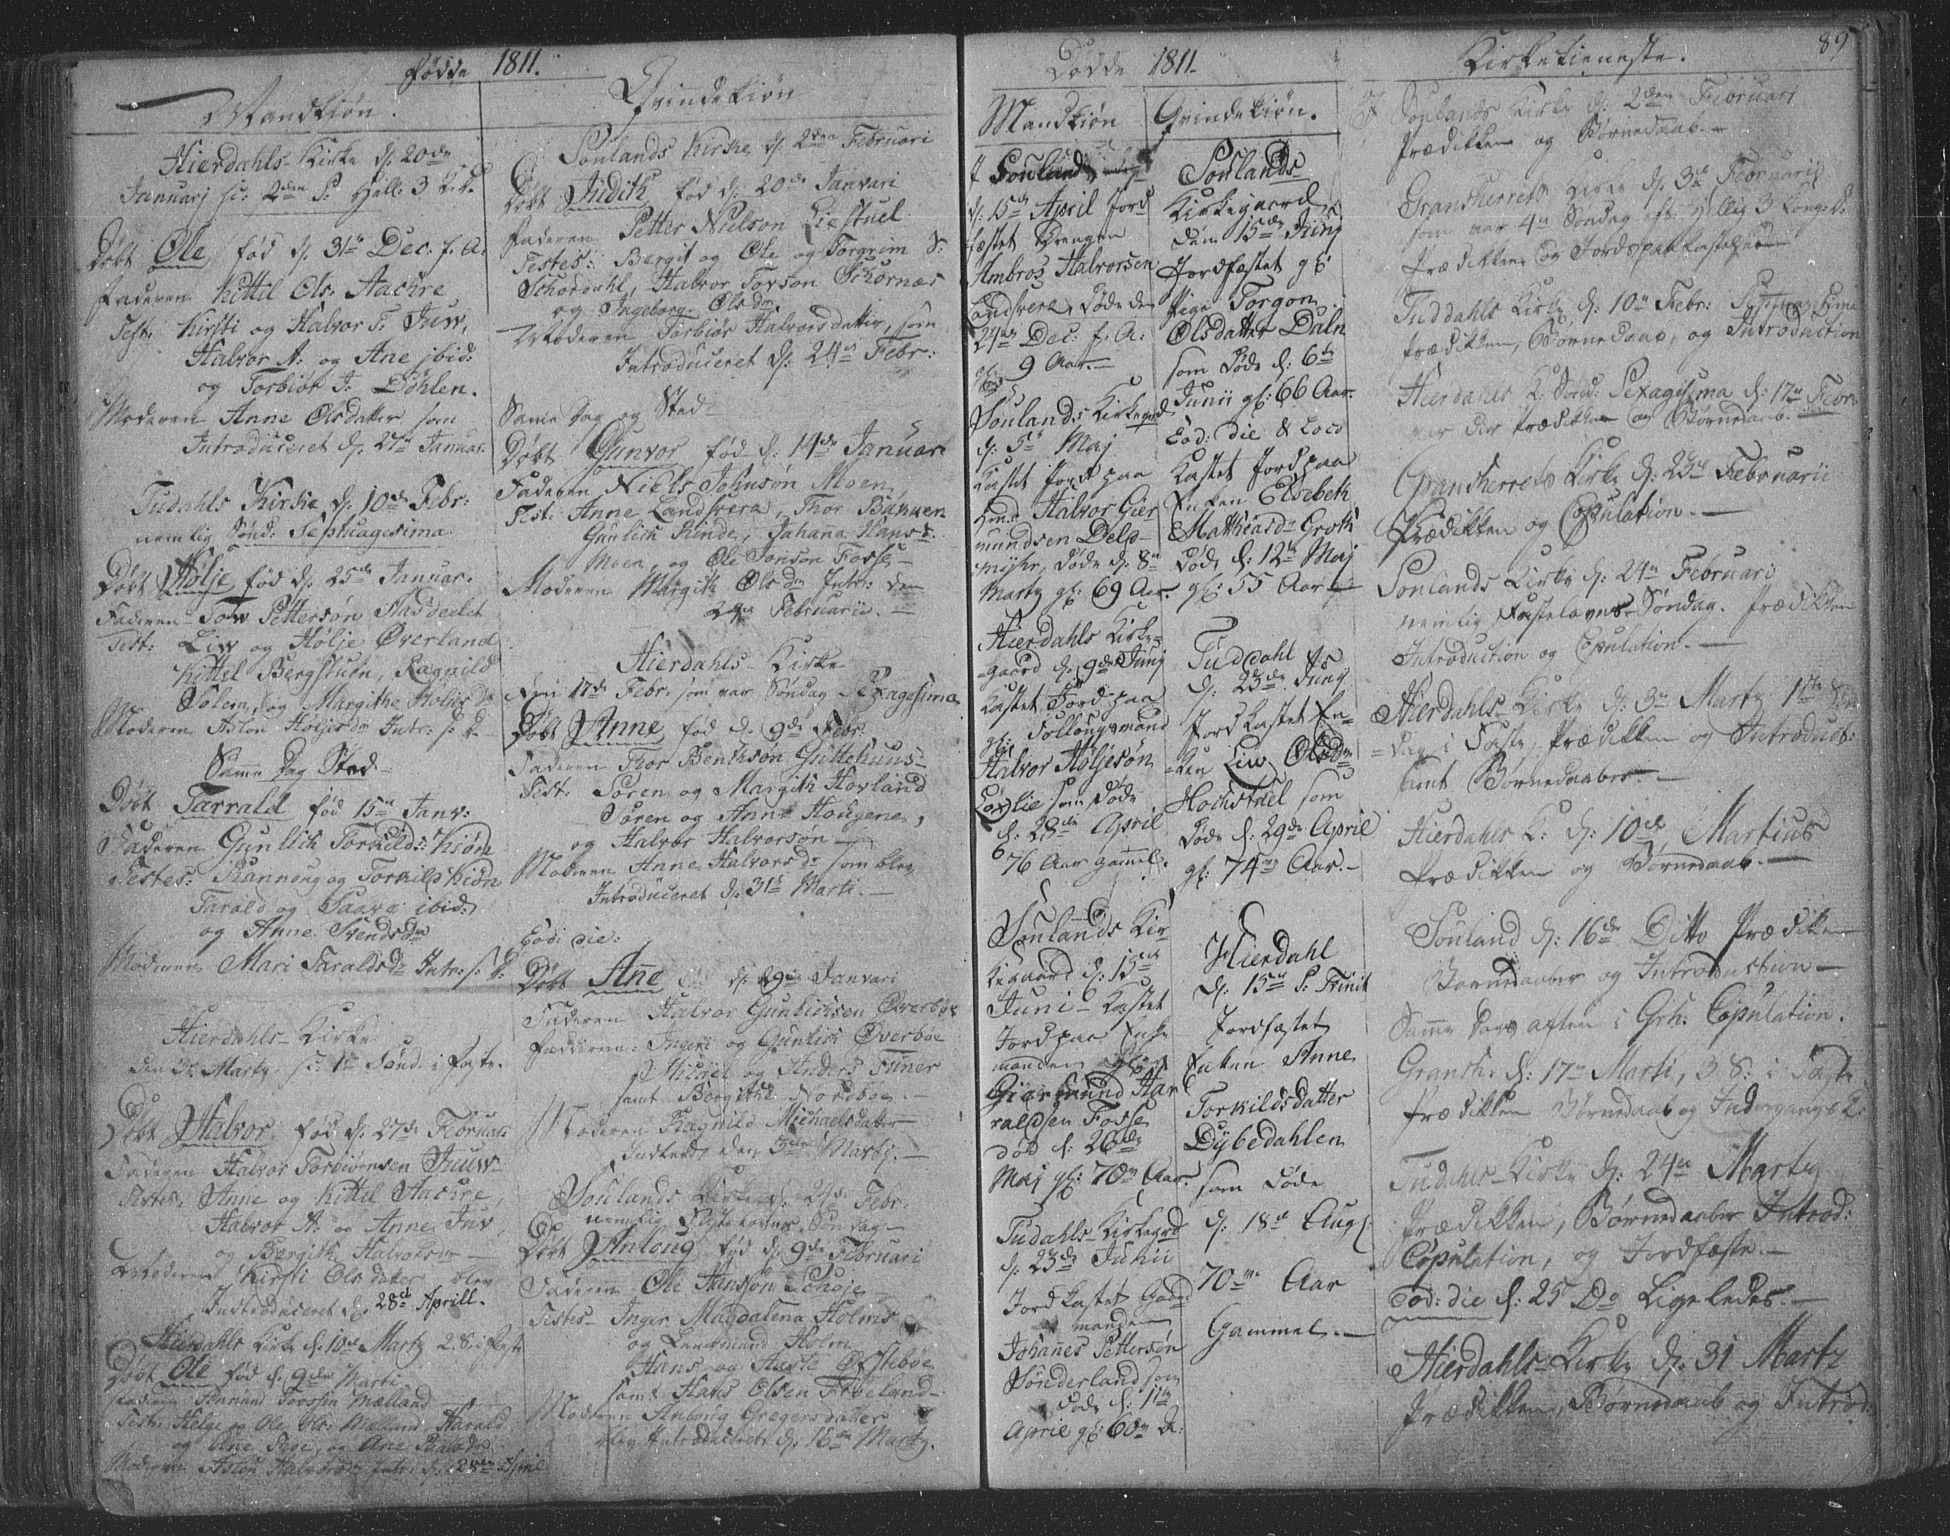 Fødde 1811.
Mandkiøn.
Hierdahls Kirke d. 20de
Januarj
Døbt Ole, fød d. 31te Dec: f. A:
Faderen Kittil Ols. Aackre
Test: Kirsti og Halvor T. Juw,
Halvor A: og Ane ibid:
og Torbiør J: Døhlen.
Moderen Anne Olsdatter som
Introduceret d. 27de Januar.
Tudahls Kirke d. 10de Febr:
nemlig Sønd: Septuagesima
Døbt Hølje fød d. 25de Januar.
Faderen Tow Pettersøn
Test: Liw og Hølje Øverland
Kittil Bergstuen, Ragnild
Solem, og Margithe Høljesdr
Moderen Aslou Høljesdr Intr: s: D.
Samme Dag Sted
Døbt Tarrald fød 15de Janv:
Faderen Gunlich Torkilds: Kiøn
Testes: Rannong og Torkild Kiøn
Tarald og Saara ibid:
og Anne Svendsdr
Moderen Mari Taraldsdr Intr: s: D:
Hierdahls Kirke
den 3de Martz sc: 1te Sønd: i Faste.
Døbt Halvor fød d. 27de Februar.
Faderen Halvor Torbiørnsen Juuw
Testes: Anne og Kittil Aackre,
Halvor A: og Anne Juv,
og Bergith Halvorsdr
Moderen Kirsti Olsdatter blev
Introduceret d. 28de Aprill.
Hierdahls Kirke d. 10de Martz 2. S: i Faste
Døbt Ole fød d. 9de Marti
Faderen Toresen Mælland
Test: Helge og Ole Ols: Mælland, Harald
og Ane og Ane
Moderen Aslou Halvorsdr Intr: d. 28de April
Qvindekiøn
Soulands Kirke d. 2den Februari
Døbt Judith fød d. 20de Janvari
Faderen Petter Nielson Liestuel
Testes: Bergit og Ole og Torgrim S:
Schordahl, Halvor Torson Schornæs
og Ingeborg Olsdr
Moderen Torbiør Halvorsdatter, som
Introduceret d. 24de Febr:
Same Dag og Sted
Døbt Gunvor fød d. 14de Januari
Faderen Niels Johnsøn Moen
Test: Anne Landsverk, Thor Bønnen
Gunlich Rinde, Johanna Hansd.
Moen, og Ole Jonson Fosse
Moderen Margith Olsdr Intr: den
24de Februarii.
Hierdahls Kirke
den 17de Febr: som var Søndag Sexagesima
Døbt Anne fød d. 9de Febr.
Faderen Thor Benthsøn Guttehuus
Test: Søren og Margith Hovland
Søren og Anne Hougene,
og Halvor Halvorsøn
Moderen Anne Halvorsdr som blev
Introduceret d. 31te Marti.
Eod: die:
Døbt Ane fød d. 29de Janvari
Faderen Halvor Gunlichsen Øverbøe
Fadderne: Ingeri og Gunlich Øverbøe
Michel og Anders Finer
samt Bergithe Nordbøe.
Moderen Ragnild Michaelsdatter
den 3de Martz.
Soulands Kirke d. 24de Febr:
nemlig Fastelovns Søndag
Døbt Anloug fød d. 9de Februari
Faderen Ole Hansøn Schoje
Testes Inger Magdalena Holms
og Holm
Hans og Aaste Øfstebøe
samt Hans Olsen Frøeland
Moderen Anloug Gregersdatter
blev Introduceret d. 16de Martz.
Dødde 1811.
Mandkiøn
Souland
d. 15de April Jord
fæstet Drengen
Ambros Halvorsen
Landsverk, døde den
24de Dec: f. A:
9 Aar.
Soulands Kirkegrd
d. 5te Maj
kastet Jord paa
Halvor Gier
mundsen Delp
myhr, døde d. 8de
Martz gl: 69 Aar.
Hierdahls Kirke
gaard d. 9de Junj
kastet Jord paa
Follougsmand
Halvor Høljesøn
Løxlie som døde
d. 28de April
76 Aar gammel.
Soulands Kir
kegaard d. 15de
Juni kastet
Jord paa Enke
manden
Giermund Har
raldsen Fosse
død d. 26de
Maj gl: 70de Aar.
Tudahls Kirkegrd
d. 23de Junii
Jordkastet Gaard
manden
Johannes Pettersøn
Sønderland som
døde d. 11te
April gl: 60de A:
Qvindekiøn.
Soulands
Kirkegaard
den 15de Junj
Jordfæstet gl:
Pige Torgon
Olsdatter Daln
som døde d: 6te
Junii gl: 66 Aar.
Eod: die & Loco
kastet Jord paa
Enken Elsebeth
Mathiasdr Groth
døde d. 12te Maj
gl: 55 Aar
Tuddahl
d. 23de Junj
Jordkastet En
ken Liw Olsdr
Hochstuel som
døde d. 29de April
gl: 74de Aar.
Hierdahl
d. 15de S. Trinit
Jordfæstet
Enken Anne
Torkildsdatter
Dybedahlen
som døde
d. 18de Aug:
70de Aar
Gammel.
Kirketieneste.
89
Soulands Kirke d. 2den Februari
Prædikken og Børnedaab.
Gransherrets Kirke d. 3de Februarii
som var 4de Søndag eft: Hellig 3 Konge D.
Prædikken og Jordspaakastelse
Tuddahls Kirke d. 10de Febr: Septuagesima
Prædikken, Børnedaab, og Introduction
Hierdahls K. Sønd: Sexagesima d. 17de Febr.
var der Prædikken og Børnedaab.
Gransherrets Kirke d. 23de Februarii
Prædikken og Copulation.
Soulands Kirke d. 24de Februarj
nemlig Fastelavns Søndag. Prædikken
Introduction og Copulation.
Hierdahls Kirke d. 3de Martz 1te Søn
dag i Faste, Prædikken og Introduct:
samt Børnedaaber.
Hierdahls K: d. 10de Martius
Prædikken og Børnedaab.
Souland d. 16de Ditto Prædikken
Børnedaaber og Introduction.
Samme Dags aften i Grh: Copulation.
Gransh. d. 17de Marti, 3 S: i Faste
Prædikken Børnedaab og Indgangs K.
Tudahls Kirke d. 24de Martz
Prædikken, Børnedaaber Introd:
Copulation, og Jordfæste.
Eod: die d: 25 Do Ligeledes.
Hierdahls Kirke d. 31 Martz
Prædikken, Børnedaab og Introd: